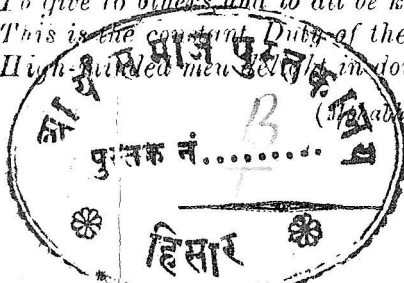 To give to others and to all be k
This is the constant Duty of the
High-minded men delight in doi
(Mahabh
आर्य समाज पुस्तकालय
पुस्तक नं..........
B
हिसार